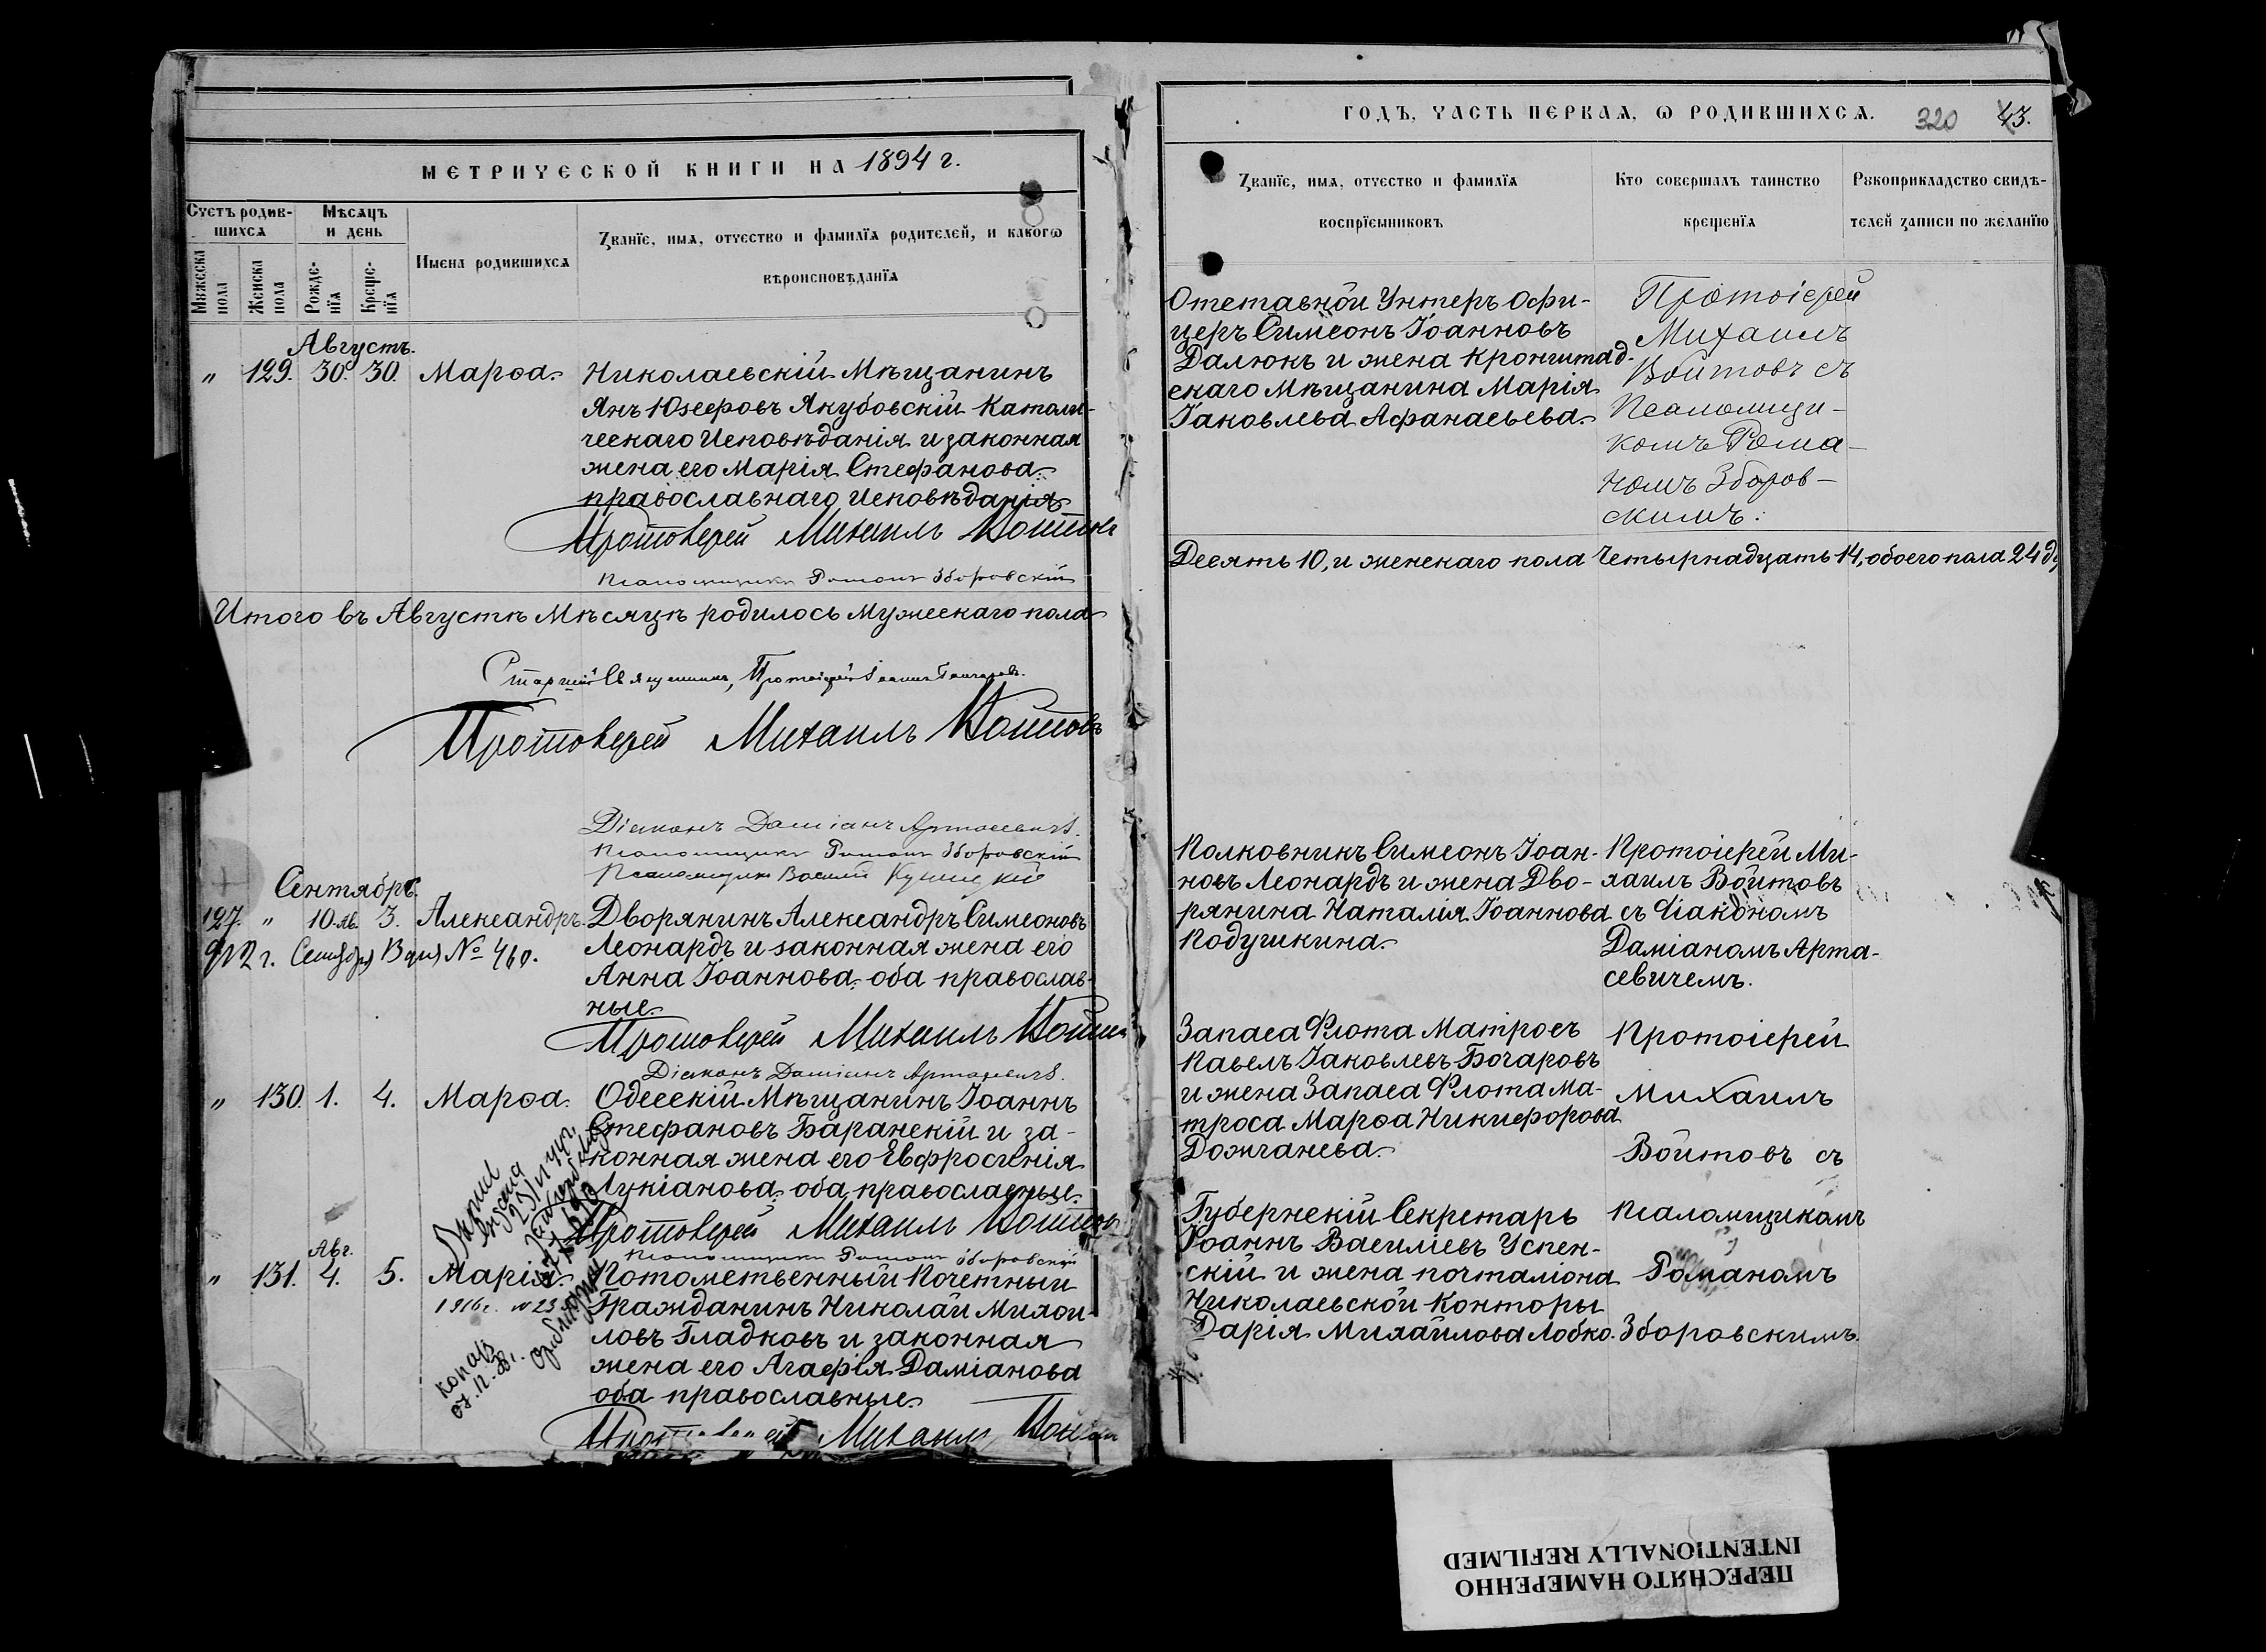 МЕТРИЧЕСКОЙ КНИГИ НА 1894 г.
Счетъ родив-
шихся
Мѣсяцъ
и день
Мужеска
пола
Женска
пола
Рожде-
нія
Креще-
нія
Имена родившихся
Званіе, имя, отчество и фамилія родителей, и какогѡ
вѣроисповѣданія
Августъ.
" 129. 30. 30. Марѳа. Николаевскій Мѣщанинъ
Янъ Юзефовъ Якубовскій Католи-
ческаго Исповѣданія и законная
жена его Марія Стефанова
православнаго Исповѣданія
Протоіерей Михаилъ Войтовъ
Псаломщикъ Романъ Зборовскій
Итого въ Августѣ Мѣсяцѣ родилось Мужескаго пола
Старшій Священникъ, Протоіерей
Протоіерей Михаилъ Войтовъ
Діаконъ Даміанъ Артасевичъ.
Псаломщикъ Романъ Зборовскій
Псаломщикъ Василій
Сентябрь.
127. " 10. Ав. 3. Александръ. Дворянинъ Александръ Симеоновъ
912 г. Сентября № 460. Леонардъ и законная жена его
Анна Іоаннова оба православ-
ные.
Протоіерей Михаилъ Войтовъ
Діаконъ Даміанъ Артасевичъ.
" 130. 1. 4. Марѳа. Одесскій Мѣщанинъ Іоаннъ
Стефановъ Баранскій и за-
конная жена его Евфросинія
Лукіанова оба православные.
Протоіерей Михаилъ Войтовъ
Псаломщикъ Романъ Зборовскій
Авг.
" 131. 4. 5. Марія. Потомственный Почетный
1916 г. № 23 Гражданинъ Николай Михаи-
ловъ Гладковъ и законная
жена его Агафія Даміанова
оба православные.
Протоіерей Михаилъ Войтовъ
ГОДЪ, ЧАСТЬ ПЕРВАЯ, Ѡ РОДИВШИХСЯ. 320 43.
Званіе, имя, отчество и фамилія
воспріемниковъ
Кто совершалъ таинство
крещенія
Рукоприкладство свидѣ-
телей записи по желанію
Отставной Унтеръ Офи-
церъ Симеонъ Іоанновъ
Далюкъ и жена Кронштад-
скаго Мѣщанина Марія
Іаковлева Афанасьева.
Протоіерей
Михаилъ
Войтовъ съ
Псаломщи-
комъ Рома-
номъ Зборов-
скимъ.
Десять 10, и женскаго пола Четырнадцать 14, обоего пола 24 д
Полковникъ Симеонъ Іоан-
новъ Леонардъ и жена Дво-
рянина Наталія Іоаннова
Подушкина.
Протоіерей Ми-
хаилъ Войтовъ
съ Діакономъ
Даміаномъ Арта-
севичемъ.
Запаса Флота Матросъ
Павелъ Іаковлевъ Бочаровъ
и жена Запаса Флота Ма-
троса Марѳа Никифорова
Дожганева.
Протоіерей
Михаилъ
Войтовъ съ
Губернскій Секретарь
Іоаннъ Василіевъ Успен-
скій и жена почталіона
Николаевской Конторы
Дарія Михайлова Лобко.
Псаломщикомъ
Романомъ
Зборовскимъ.
ПЕРЕСНЯТО НАМЕРЕННО
INTENTIONALLY REFILMED